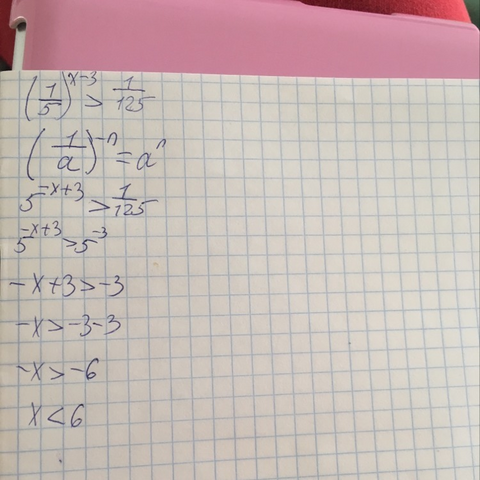 (1/5)^x-3 > 1/125
(1/a)^-n = a^n
5^-x+3 > 1/125
5^-x+3 > 5^-3
-x+3>-3
-x>-3-3
-x>-6
x<6